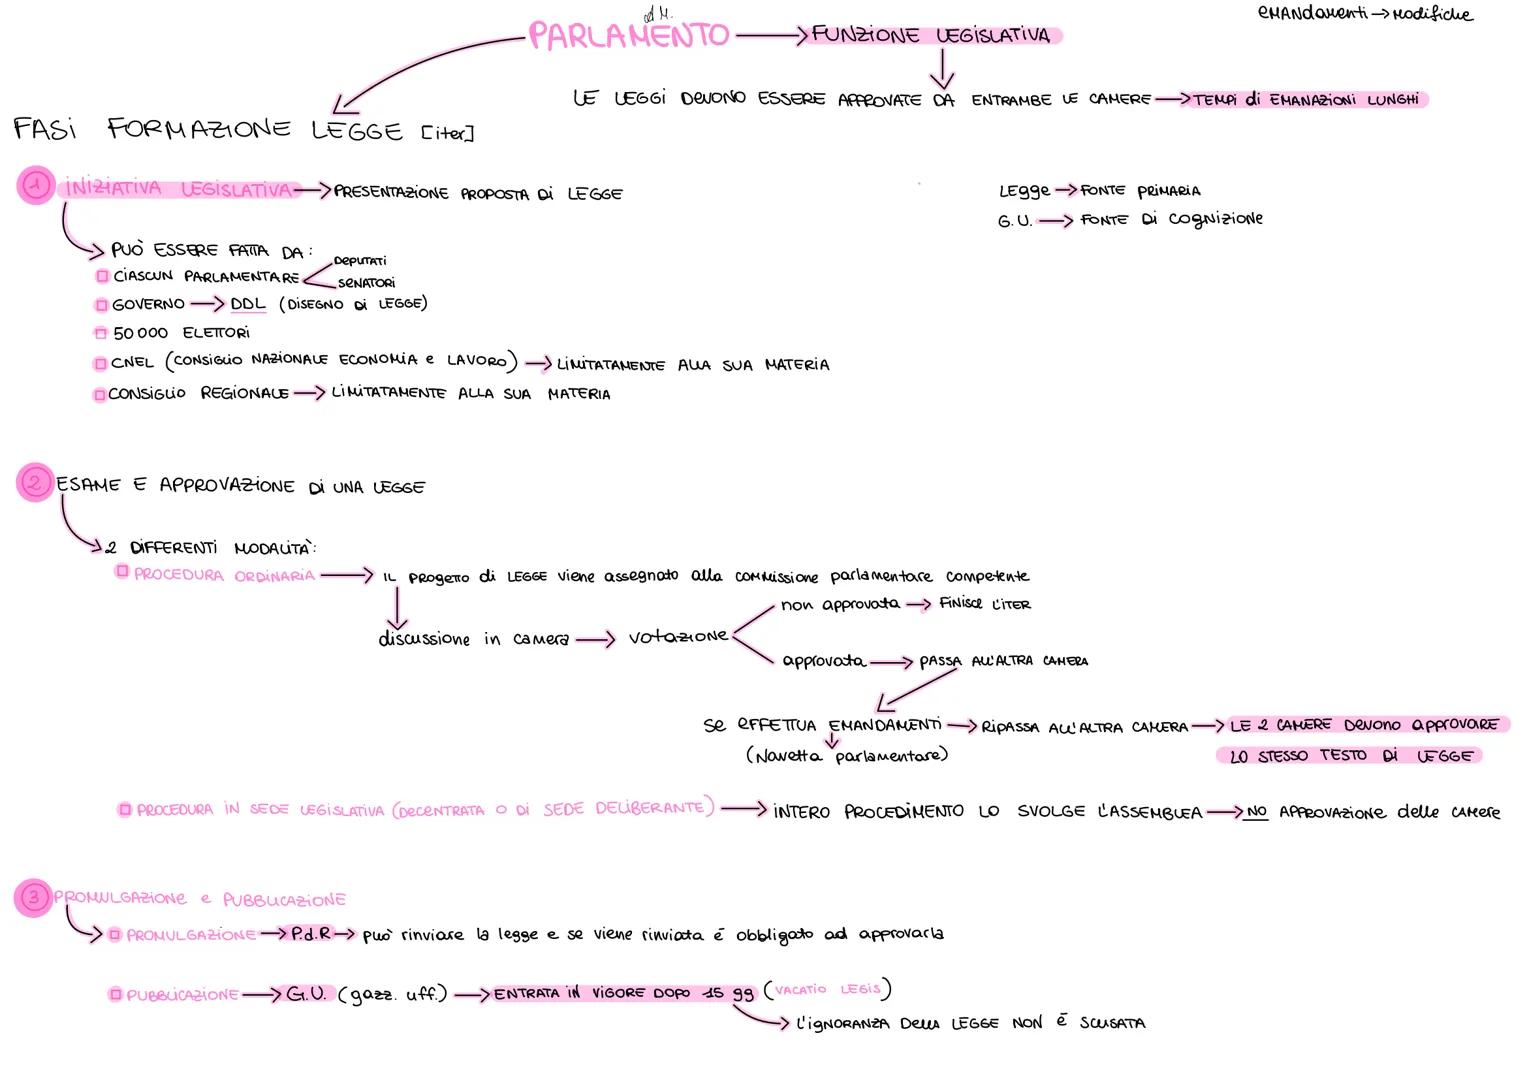 PARLAMENTO → FUNZIONE LEGISLATIVA
EMANDAMENTI → MODIFICHE
LE LEGGI DEVONO ESSERE APPROVATE DA ENTRAMBE LE CAMERE → TEMPI di EMANAZIONI LUNGHI
FASI FORMAZIONE LEGGE [iter]
1 INIZIATIVA LEGISLATIVA → PRESENTAZIONE PROPOSTA DI LEGGE
LEgge → FONTE PRIMARIA
G.U. → FONTE DI COGNIZIONE
PUÒ ESSERE FATTA DA:
CIASCUN PARLAMENTARE
DEPUTATI
SENATORI
GOVERNO → DDL (DISEGNO DI LEGGE)
50000 ELETTORI
CNEL (CONSIGLIO NAZIONALE ECONOMIA e LAVORO) → LIMITATAMENTE ALLA SUA MATERIA
CONSIGLIO REGIONALE → LIMITATAMENTE ALLA SUA MATERIA
2 ESAME E APPROVAZIONE DI UNA LEGGE
2 DIFFERENTI MODALITÀ:
PROCEDURA ORDINARIA → IL PROGETTO di LEGGE viene assegnato alla COMMISSIONE parlamentare competente
non approvata → FINISCE L'ITER
discussione in camera → votazione
approvata → PASSA ALL'ALTRA CAMERA
Se EFFETTUA EMANDAMENTI → RIPASSA ALL'ALTRA CAMERA → LE 2 CAMERE DEVONO APPROVARE
(Navetta parlamentare)
LO STESSO TESTO DI LEGGE
PROCEDURA IN SEDE LEGISLATIVA (DECENTRATA O DI SEDE DELIBERANTE) → INTERO PROCEDIMENTO LO SVOLGE L'ASSEMBLEA → NO APPROVAZIONE delle CAMERE
3 PROMULGAZIONE e PUBBLICAZIONE
PROMULGAZIONE → P.d.R → può rinviare la legge e se viene rinviata é obbligato ad approvarla
PUBBLICAZIONE → G.U. (gazz. uff.) → ENTRATA IN VIGORE DOPO 15 gg (VACATIO LEGIS)
L'IGNORANZA DELLA LEGGE NON É SCUSATA